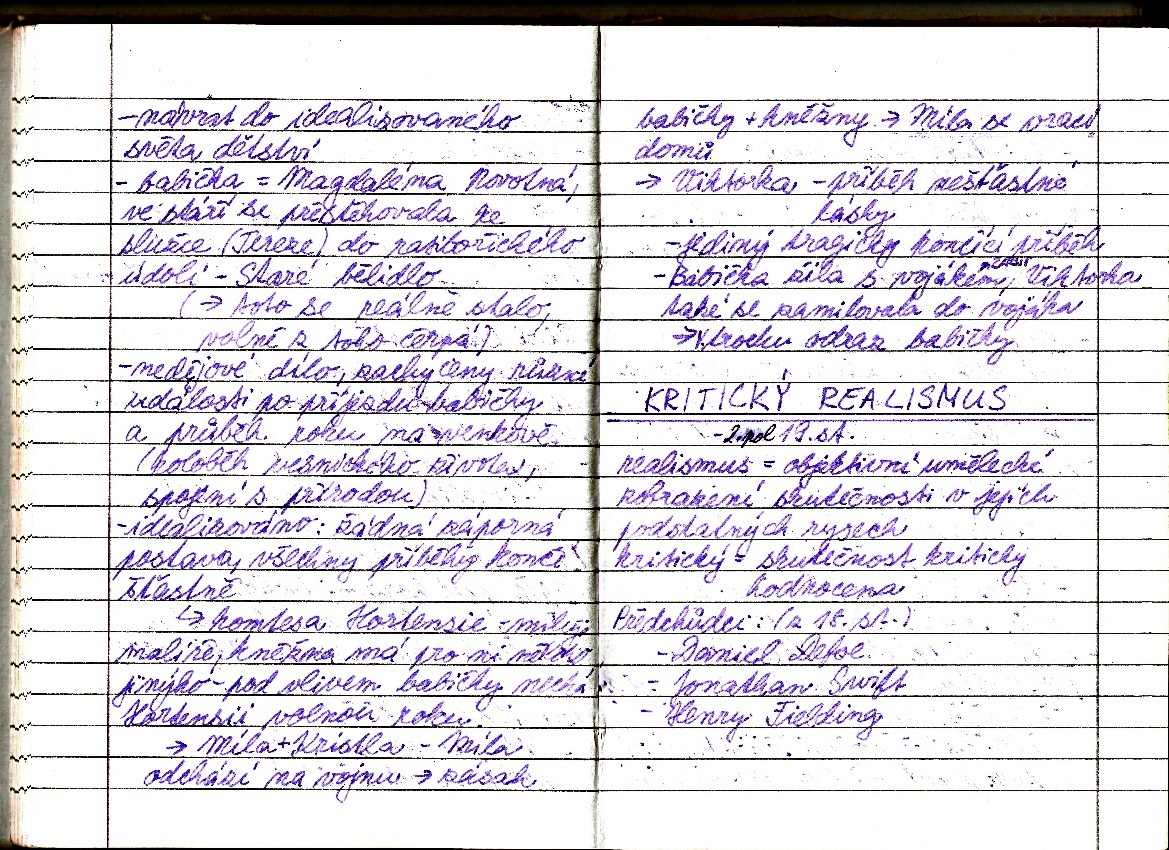 -návrat do idealizovaného
světa dětství
- babička = Magdaléna Novotná,
ve stáří se přestěhovala ke
slušce (Tereze) do ratibořického
údolí - Staré bělidlo
(→ toto se reálně stalo,
volně z toho čerpá)
-nedějové dílo, zachyceny různé
události po příjezdu babičky
a průběh roku na venkově
(koloběh vesnického života,
spojení s přírodou)
-idealizováno: žádná záporná
postava, všechny příběhy končí
šťastně
↳ komtesa Hortensie - miluje
malíře, kněžna má pro ni někoho
jinýho - pod vlivem babičky nechá
Hortensii volnou ruku
→ Míla + Kristla - Míla
odchází na vojnu → zásah
babičky + kněžny → Míla se vrací
domů
→ Viktorka - příběh nešťastné
lásky
- jediný tragicky končící příběh
- Babička žila s vojákem, Viktorka
také se zamilovala do vojáka
→ trochu odraz babičky
KRITICKÝ REALISMUS
- 2. pol 19. st.
realismus = objektivní umělecké
zobrazení skutečnosti v jejích
podstatných rysech
kritický = skutečnost kriticky
hodnocena
Předchůdci: (z 18. st.)
- Daniel Defoe
- Jonathan Swift
- Henry Fielding